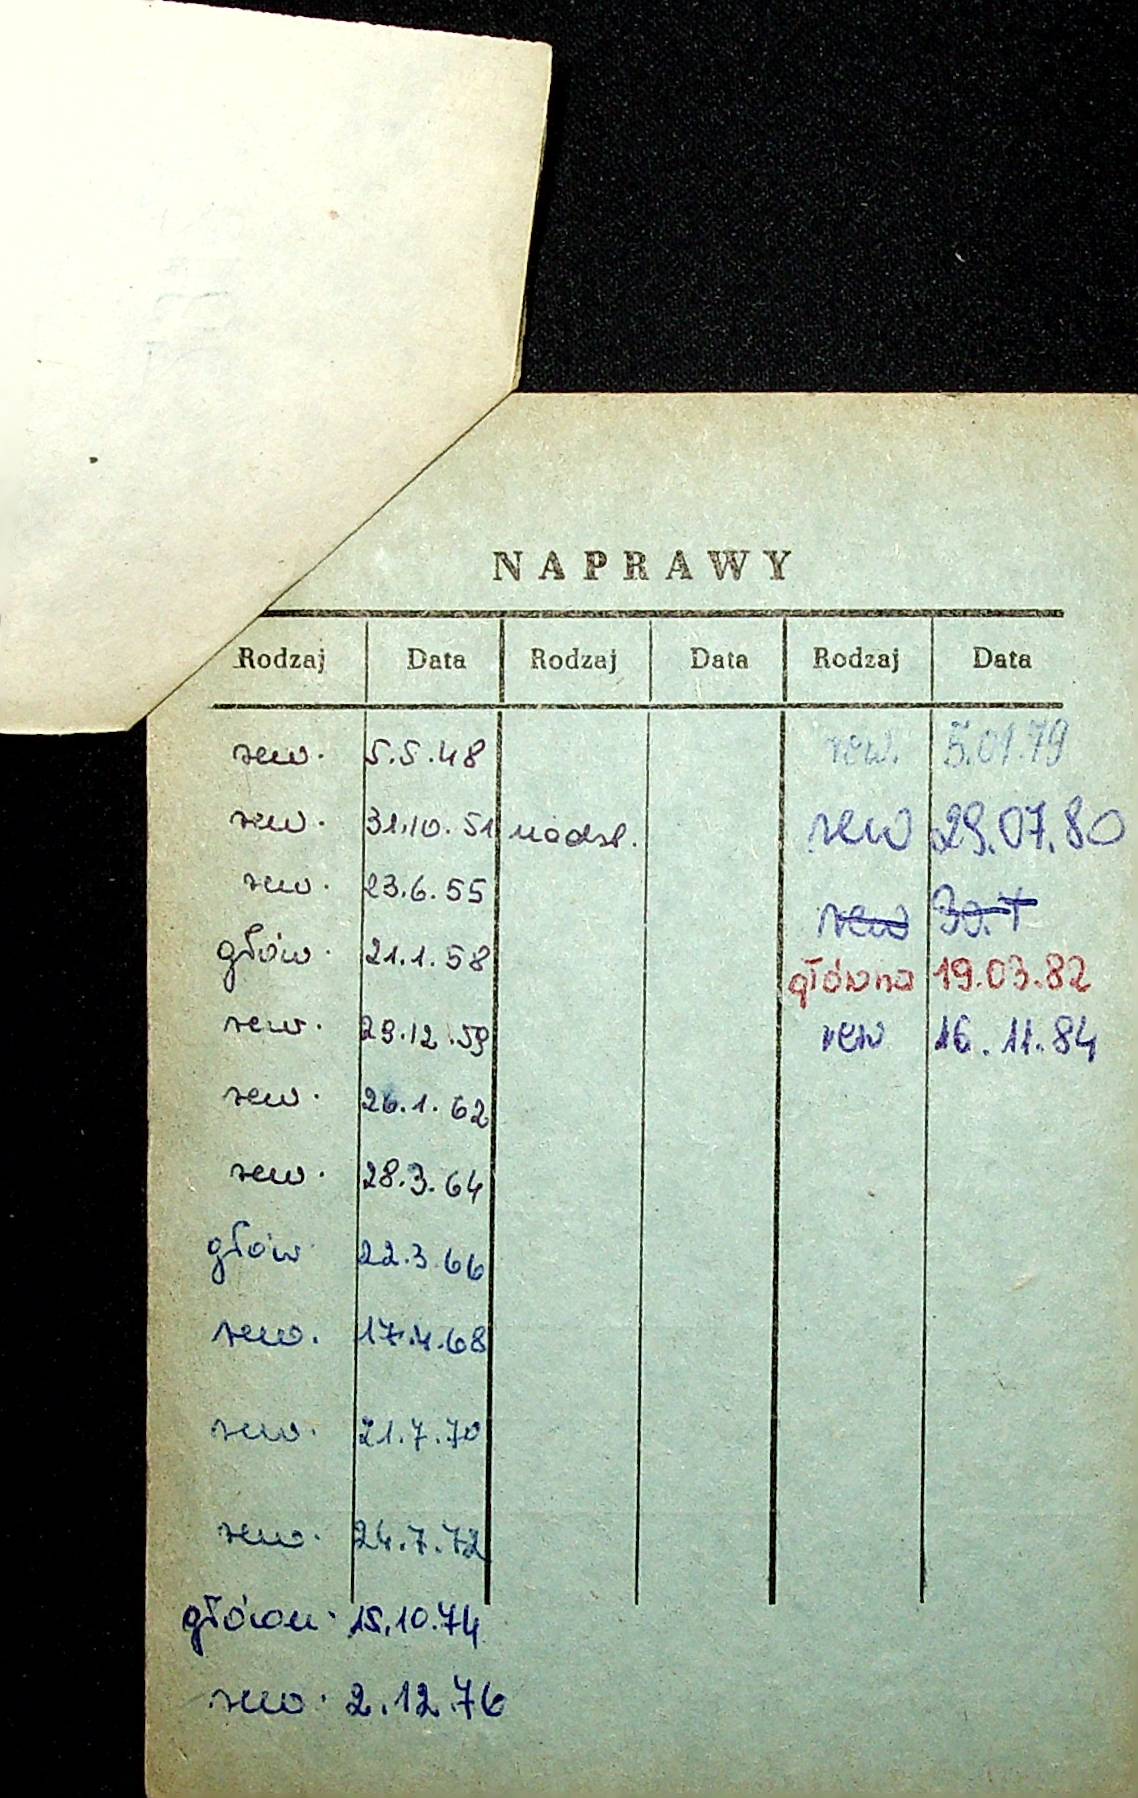 NAPRAWY
Rodzaj Data Rodzaj Data Rodzaj Data
rew. 5.5.48 rew. 5.01.79
rew. 31.10.51 nadzl. rew 29.07.80
rew. 23.6.55 rew 30.
głów. 21.1.58 główna 19.03.82
rew. 29.12.59 rew 16.11.84
rew. 26.1.62
rew. 28.3.64
głów 22.3.66
rew. 17.4.68
rew. 21.7.70
rew. 24.7.72
główn. 15.10.74
rew. 2.12.76